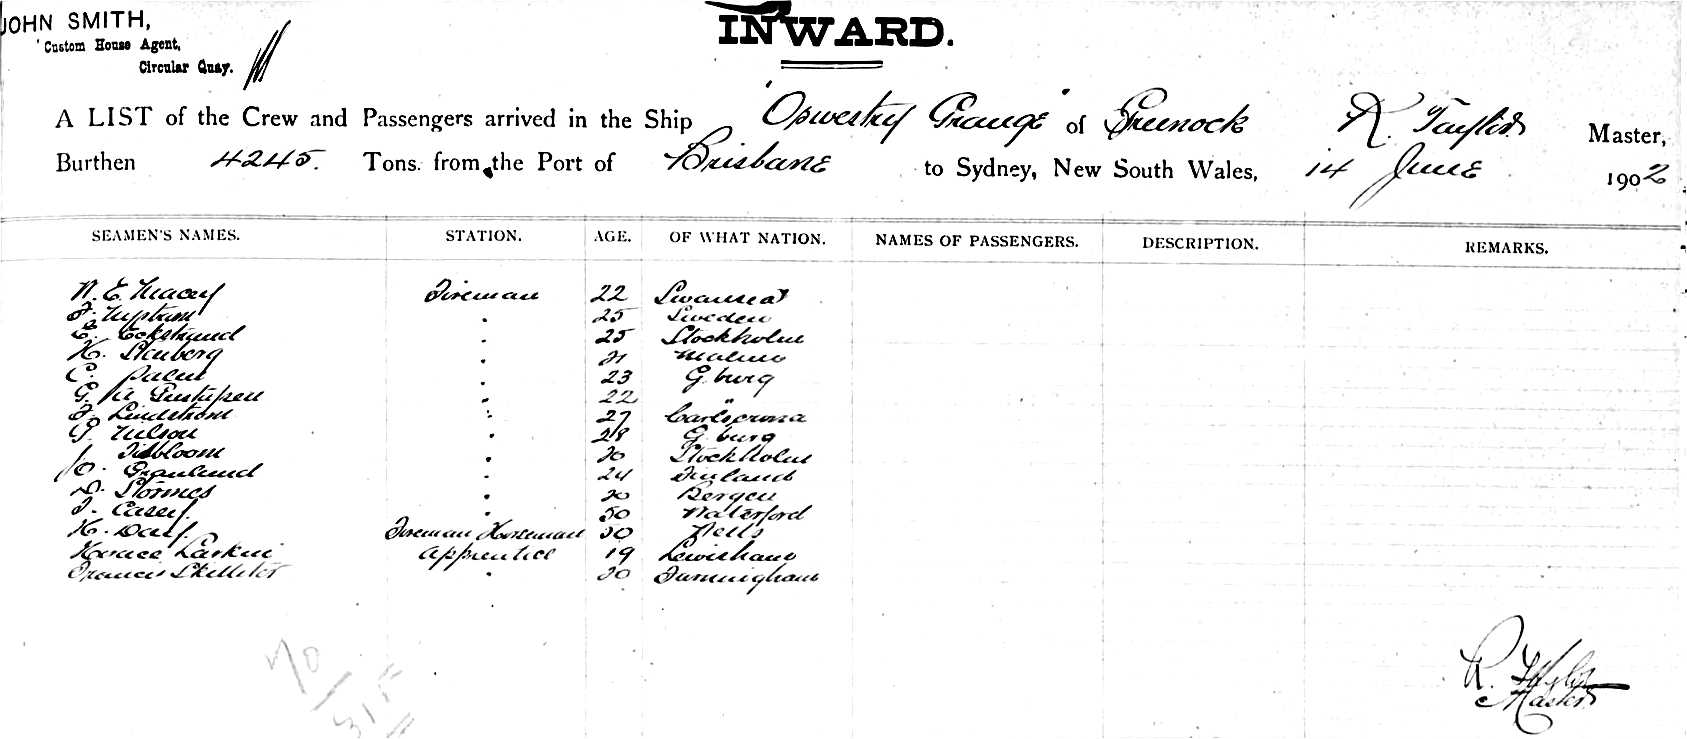 JOHN SMITH,
Custom House Agent,
Circular Quay.
INWARD.
A LIST of the Crew and Passengers arrived in the Ship "Oswestry Grange" of Greenock R. Taylor Master,
Burthen 4245. Tons. from the Port of Brisbane to Sydney, New South Wales, 14 June 1902
SEAMEN'S NAMES. STATION. AGE. OF WHAT NATION. NAMES OF PASSENGERS. DESCRIPTION. REMARKS.
N. E. Macey Fireman 22 Swansea
25 Sweden
E. Eckstrand " 25 Stockholm
H. Stenberg " 21 Malmo
C. " 23 G. burg
G. " 22 "
F. Lindstrom " 27 Carlscrona
G. Nilson " 28 G. burg
" 20 Stockholm
O. Granlund " 24 Finland
D. Stormes " 20 Bergen
T. Casey. " 50 Waterford
H. Day. Fireman Horseman 30
Horace Larkin Apprentice 19 Lewisham
Francis Skilliter " 20
R. Taylor
Master